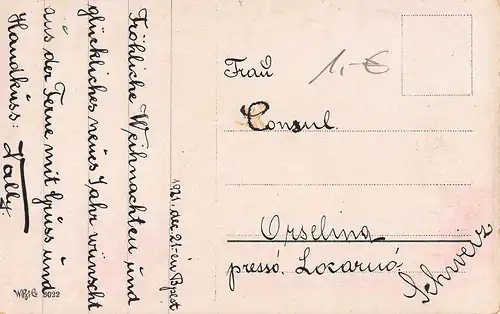 Fröhliche Weihnachten und
glückliches neues Jahr wünscht
aus der Ferne mit Gruss und
Handkuss:
1921. dec. 21-én Bpest
Frau
1,-€
Consul.
Orselina
pressó. Locarnó
Schweiz
5022